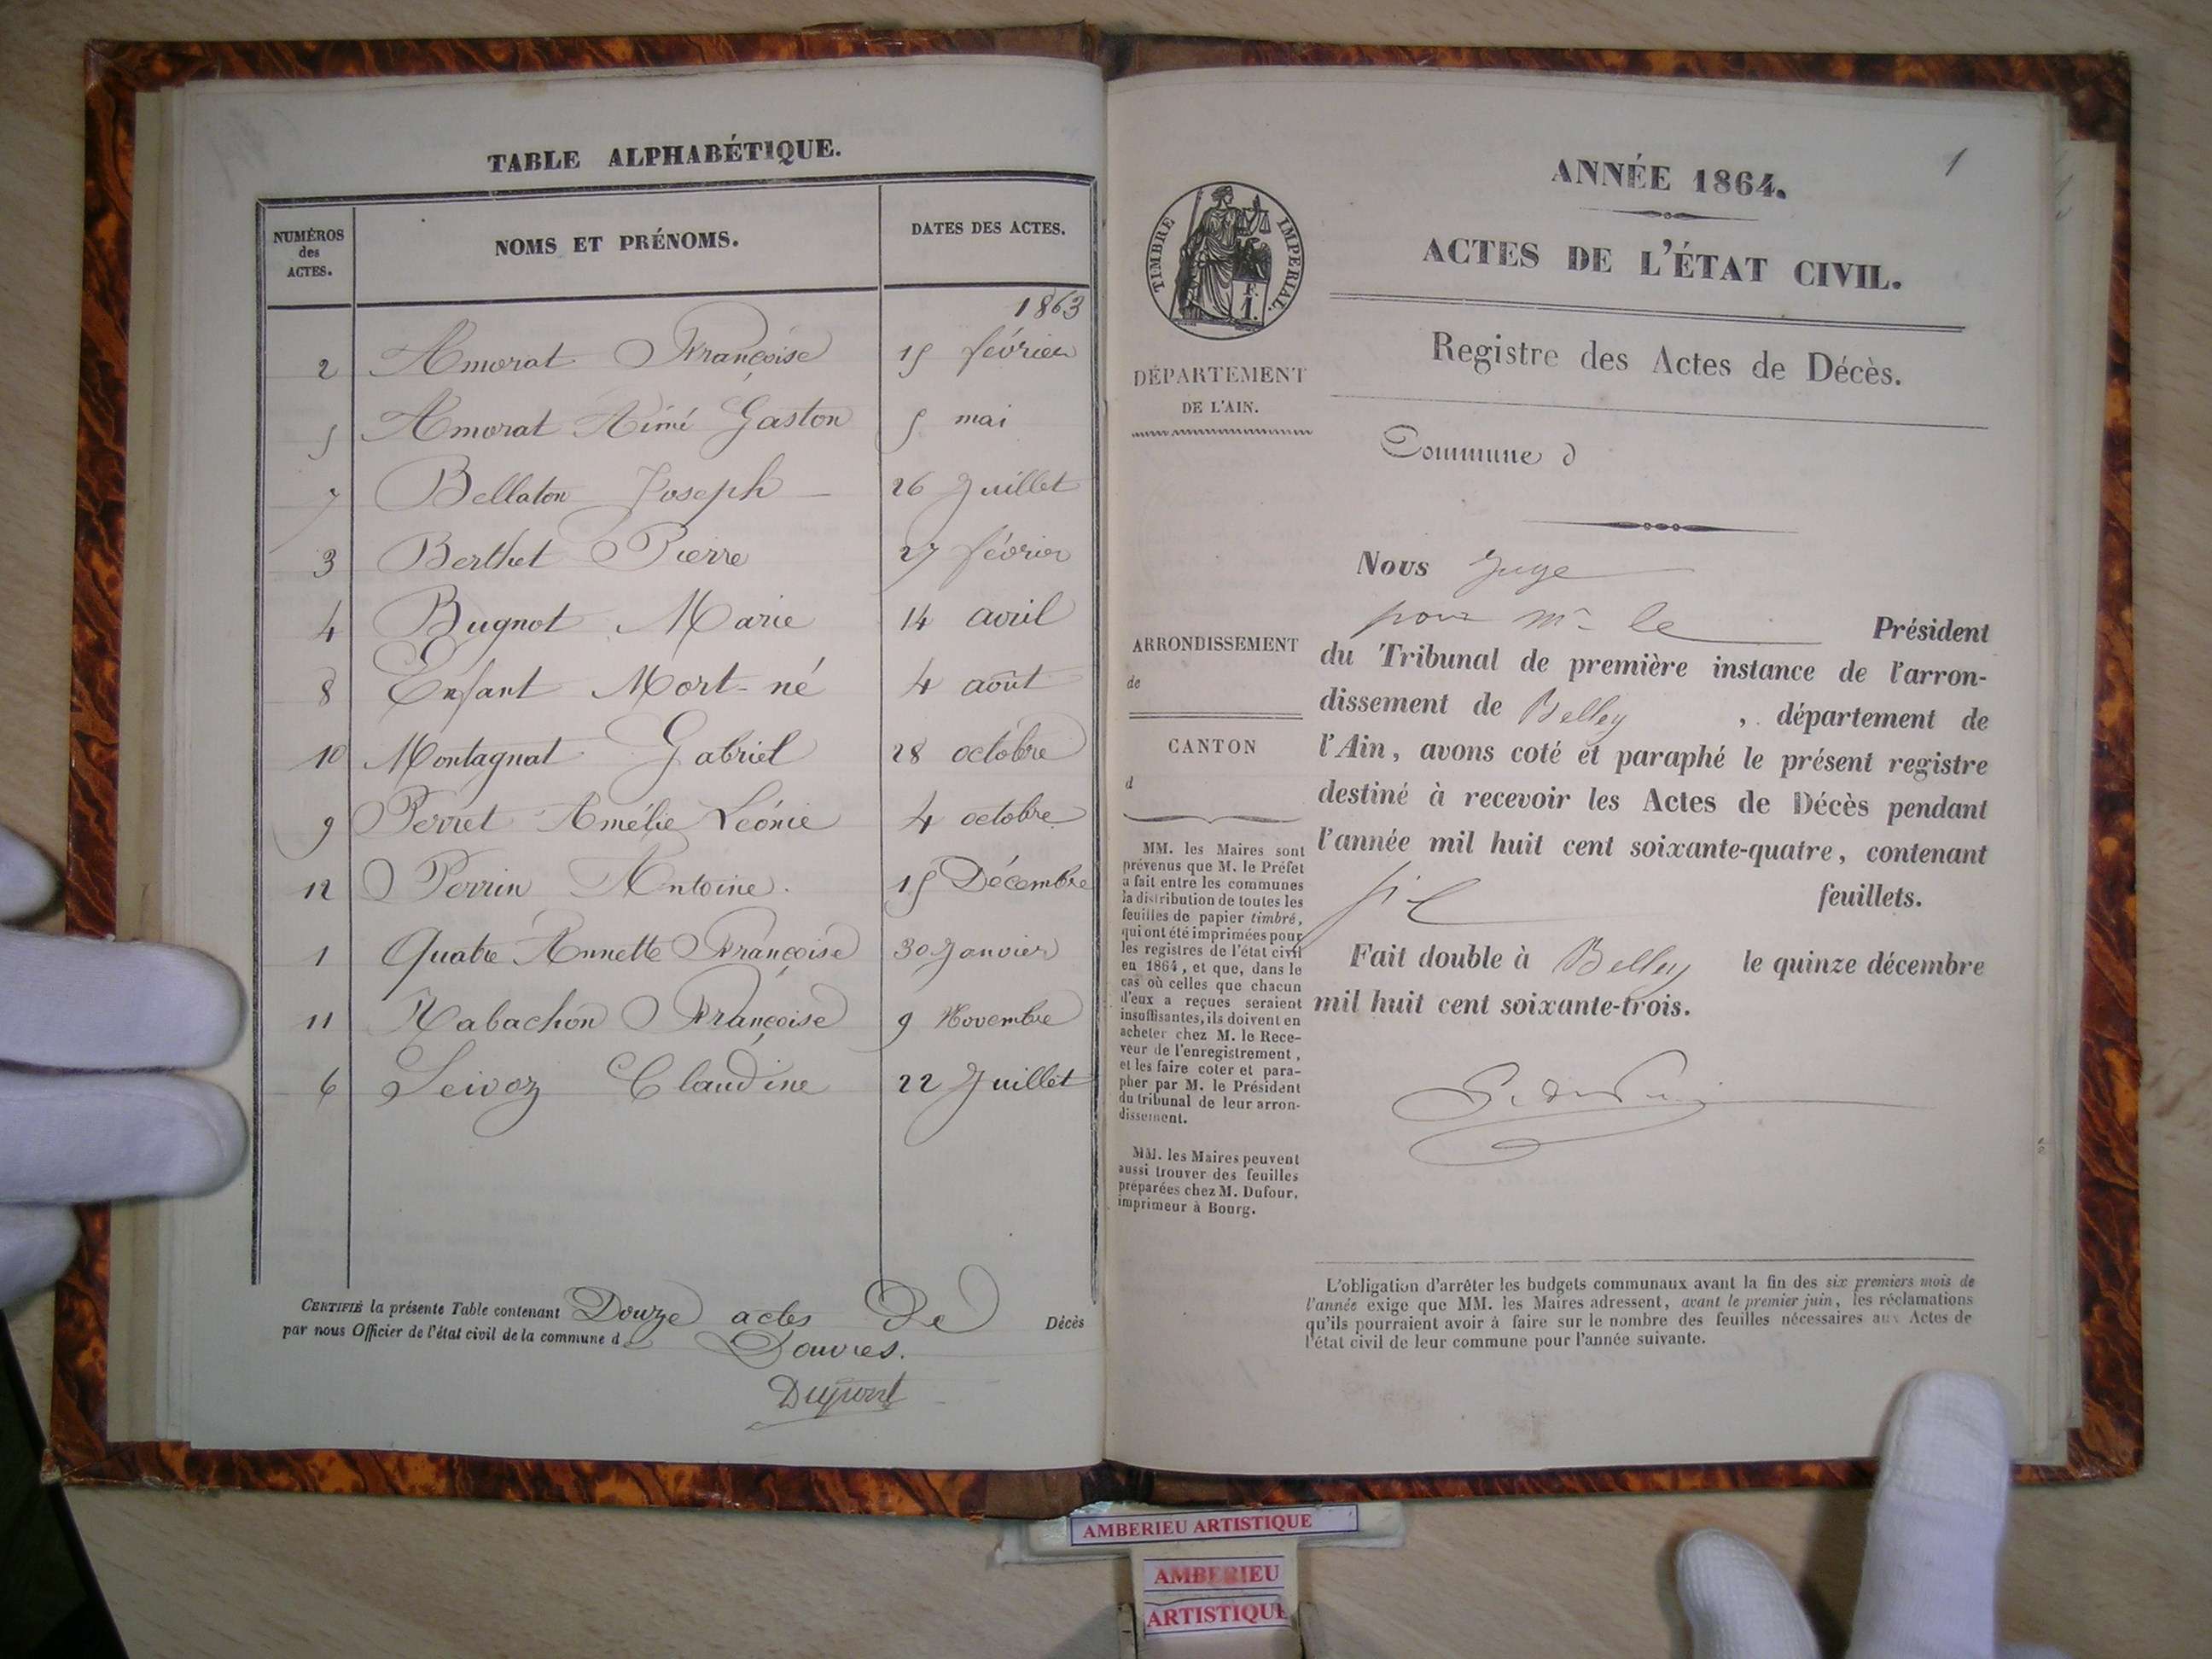 TABLE ALPHABÉTIQUE.
NUMÉROS des ACTES.
NOMS ET PRÉNOMS.
DATES DES ACTES.
1863
2 Amorat Françoise 15 février
5 Amorat Aimé Gaston 5 mai
7 Bellaton Joseph 26 Juillet
3 Berthet Pierre 27 février
4 Bugnot Marie 14 avril
8 Enfant Mort-né 4 août
10 Montagnat Gabriel 28 octobre
9 Perret Amélie Léonie 4 octobre
12 Perrin Antoine. 15 Décembre
1 Quatre Annette Françoise 30 Janvier
11 Rabachon Françoise 9 Novembre
6 Seivoz Claudine 22 Juillet
CERTIFIÉ la présente Table contenant Douze actes de Décès
par nous Officier de l'état civil de la commune de Douvres.
Dupont
1
ANNÉE 1864.
ACTES DE L'ÉTAT CIVIL.
Registre des Actes de Décès.
Commune d
TIMBRE IMPÉRIAL.
F.
1.
DÉPARTEMENT
DE L'AIN.
ARRONDISSEMENT
de
CANTON
d
MM. les Maires sont
prévenus que M. le Préfet
a fait entre les communes
la distribution de toutes les
feuilles de papier timbré,
qui ont été imprimées pour
les registres de l'état civil
en 1864, et que, dans le
cas où celles que chacun
d'eux a reçues seraient
insuffisantes, ils doivent en
acheter chez M. le Rece-
veur de l'enregistrement,
et les faire coter et para-
pher par M. le Président
du tribunal de leur arron-
dissement.
MM. les Maires peuvent
aussi trouver des feuilles
préparées chez M. Dufour,
imprimeur à Bourg.
Nous Juge
pour Mr le Président
du Tribunal de première instance de l'arron-
dissement de Belley, département de
l'Ain, avons coté et paraphé le présent registre
destiné à recevoir les Actes de Décès pendant
l'année mil huit cent soixante-quatre, contenant
feuillets.
Fait double à Belley le quinze décembre
mil huit cent soixante-trois.
L'obligation d'arrêter les budgets communaux avant la fin des six premiers mois de
l'année exige que MM. les Maires adressent, avant le premier juin, les réclamations
qu'ils pourraient avoir à faire sur le nombre des feuilles nécessaires aux Actes de
l'état civil de leur commune pour l'année suivante.
AMBERIEU ARTISTIQUE
AMBERIEU
ARTISTIQUE